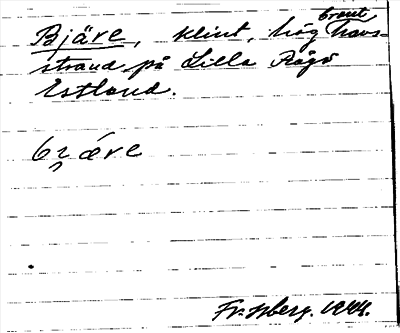 Bjäre, klint, hög brant havs-
strand på Lilla Rågö
Estland.
bi̯äre
Fr. Hberg. 1944.